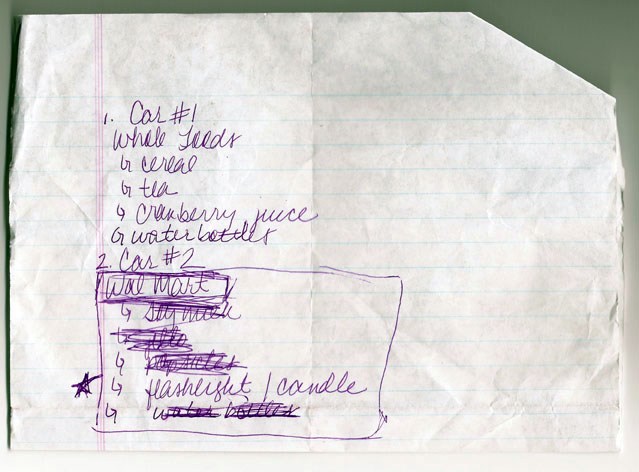 1. Car #1
Whole Foods
↳ cereal
↳ tea
↳ cranberry juice
↳ water bottles
2. Car #2
Wal Mart
↳ soy milk
↳ jello
↳
↳ flashlight / candle
↳ water bottles